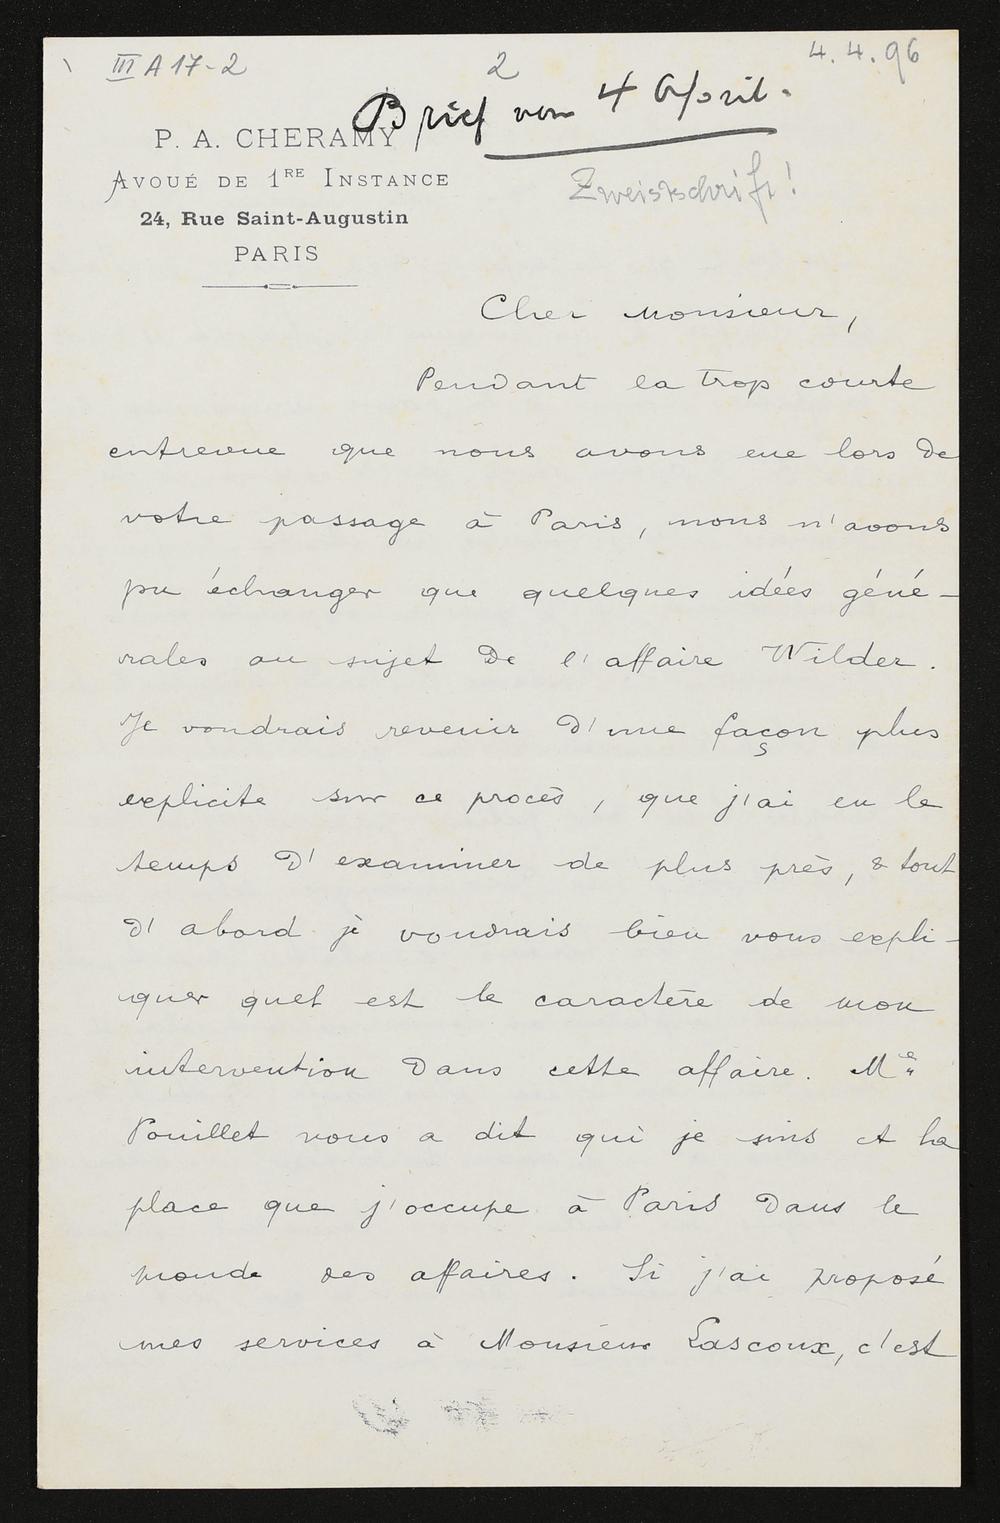 III A 17-2
2
4.4.96
Brief vom 4 April.
Zweitschrift!
P. A. CHERAMY
AVOUÉ DE 1RE INSTANCE
24, Rue Saint-Augustin
PARIS
Cher Monsieur,
Pendant la trop courte
entrevue que nous avons eue lors de
votre passage à Paris, nous n'avons
pu échanger que quelques idées géné-
rales au sujet de l'affaire Wilder.
Je voudrais revenir d'une façon plus
explicite sur ce procès, que j'ai eu le
temps d'examiner de plus près, & tout
d'abord je voudrais bien vous expli-
quer quel est le caractère de mon
intervention dans cette affaire. Me
Pouillet vous a dit qui je suis et la
place que j'occupe à Paris dans le
monde des affaires. Si j'ai proposé
mes services à Monsieur Lascoux, c'est